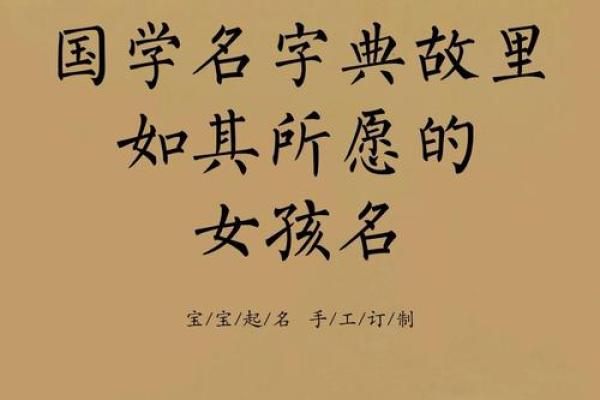 国学名字典故里
如其所愿的
女孩名
宝/宝/起/名 手/工/订/制